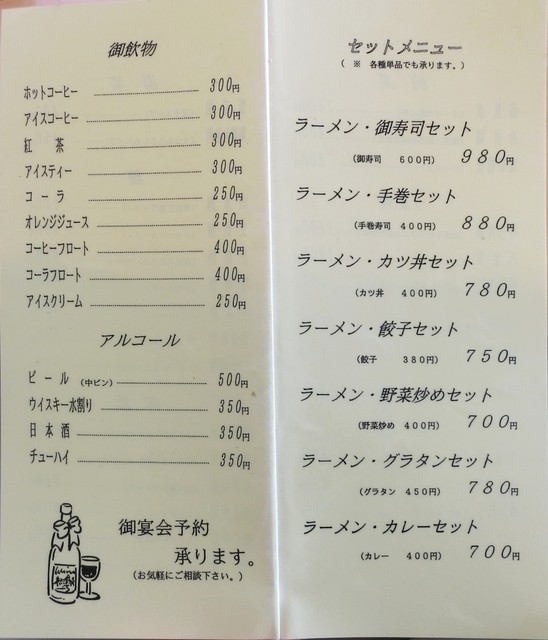 御飲物
ホットコーヒー 300円
アイスコーヒー 300円
紅茶 300円
アイスティー 300円
コーラ 250円
オレンジジュース 250円
コーヒーフロート 400円
コーラフロート 400円
アイスクリーム 250円
アルコール
ビール (中ビン) 500円
ウイスキー水割り 350円
日本酒 350円
チューハイ 350円
御宴会予約
承ります。
(お気軽にご相談下さい。)
セットメニュー
( ※ 各種単品でも承ります。)
ラーメン・御寿司セット
(御寿司 600円) 980円
ラーメン・手巻セット
(手巻寿司 400円) 880円
ラーメン・カツ丼セット
(カツ丼 400円) 780円
ラーメン・餃子セット
(餃子 380円) 750円
ラーメン・野菜炒めセット
(野菜炒め 400円) 700円
ラーメン・グラタンセット
(グラタン 450円) 780円
ラーメン・カレーセット
(カレー 400円) 700円